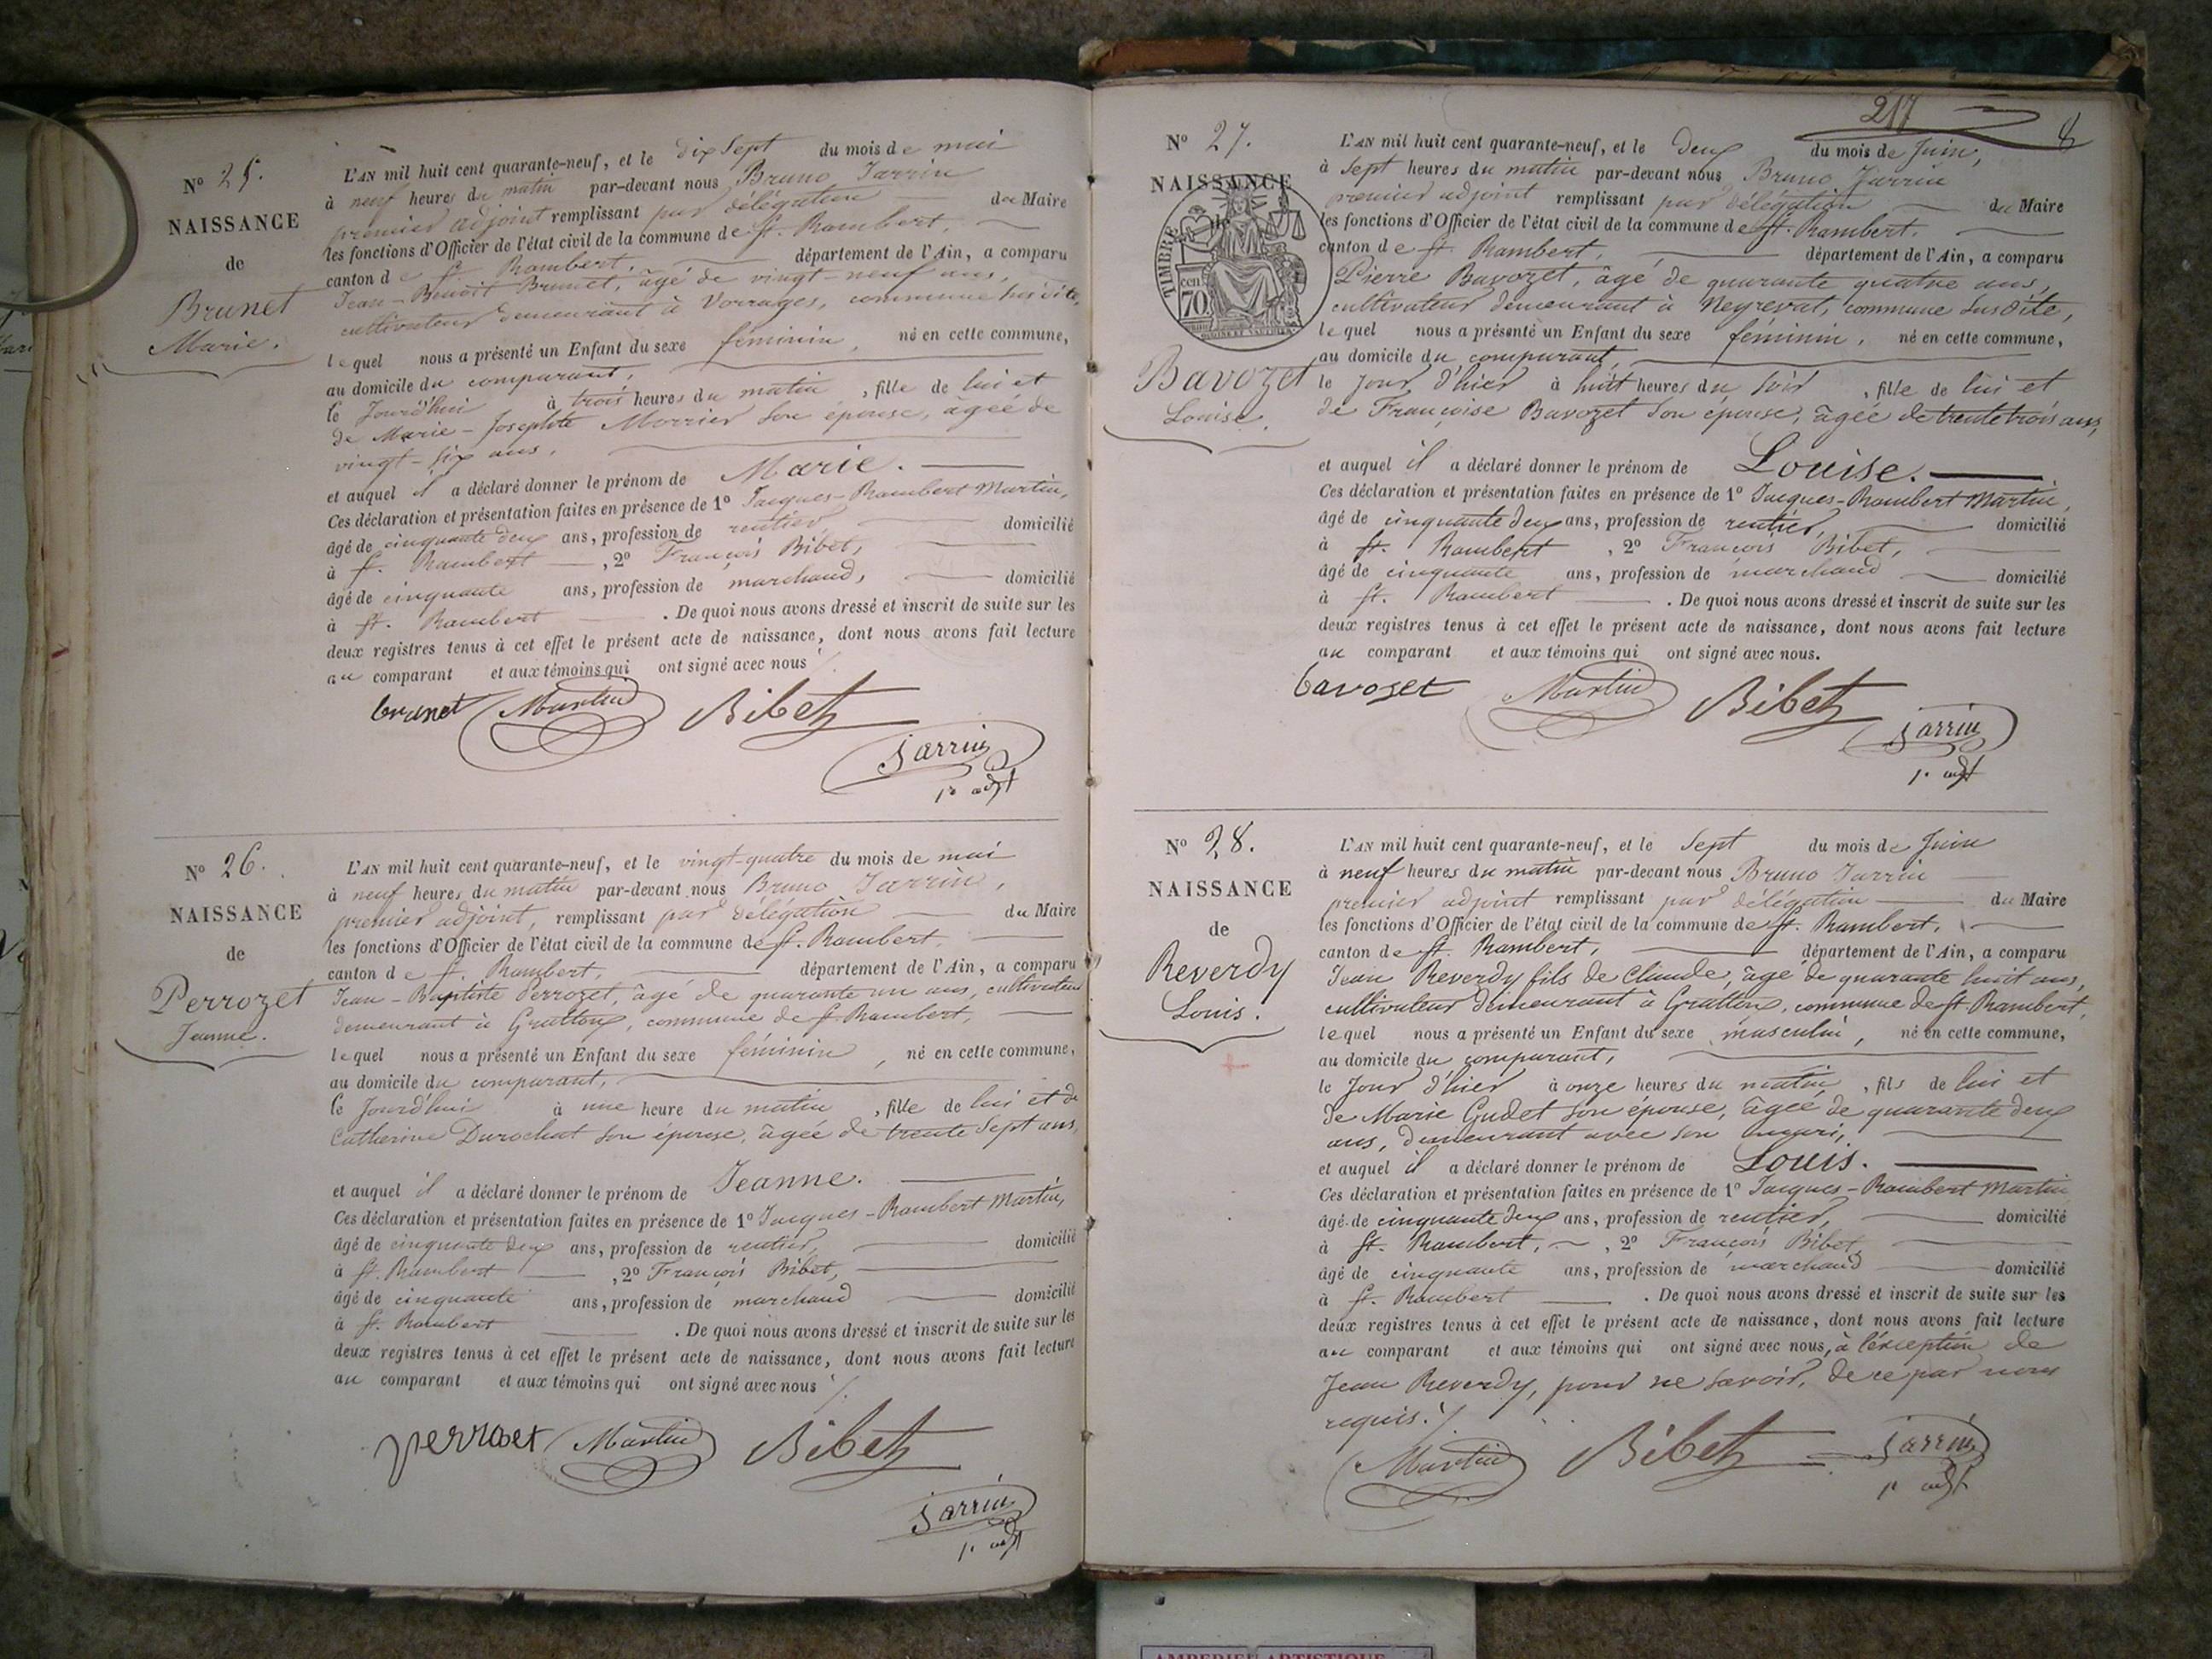 N° 25.
NAISSANCE
de
Brunet
Marie.
L'AN mil huit cent quarante-neuf, et le dix Sept du mois de mai
à neuf heures du matin par-devant nous Bruno Jarrin
premier adjoint remplissant par délégation du Maire
les fonctions d'Officier de l'état civil de la commune de St. Rambert,
canton de St. Rambert, département de l'Ain, a comparu
Jean-Benoit Brunet, âgé de vingt-neuf ans,
cultivateur demeurant à Vorrages, commune susdite,
lequel nous a présenté un Enfant du sexe féminin, né en cette commune,
au domicile du comparant,
le Jourd'hui à trois heures du matin, fille de lui et
de Marie-Josephte Morrier son épouse, âgée de
vingt-six ans,
et auquel il a déclaré donner le prénom de Marie.
Ces déclaration et présentation faites en présence de 1° Jacques-Rambert Martin,
âgé de cinquante deux ans, profession de rentier, domicilié
à St. Rambert, 2° François Bibet,
âgé de cinquante ans, profession de marchand, domicilié
à St. Rambert. De quoi nous avons dressé et inscrit de suite sur les
deux registres tenus à cet effet le présent acte de naissance, dont nous avons fait lecture
au comparant et aux témoins qui ont signé avec nous
brunet Martin Bibet
Jarrin
1er adjt
N° 26.
NAISSANCE
de
Perrozet
Jeanne.
L'AN mil huit cent quarante-neuf, et le vingt-quatre du mois de mai
à neuf heures du matin par-devant nous Bruno Jarrin,
premier adjoint, remplissant par délégation du Maire
les fonctions d'Officier de l'état civil de la commune de St. Rambert,
canton de St. Rambert, département de l'Ain, a comparu
Jean-Baptiste Perrozet, âgé de quarante un ans, cultivateur
demeurant à Grattoux, commune de St. Rambert,
lequel nous a présenté un Enfant du sexe féminin, né en cette commune,
au domicile du comparant,
le Jourd'hui à une heure du matin, fille de lui et de
Catherine Durochat son épouse, âgée de trente Sept ans,
et auquel il a déclaré donner le prénom de Jeanne.
Ces déclaration et présentation faites en présence de 1° Jacques-Rambert Martin,
âgé de cinquante deux ans, profession de rentier, domicilié
à St. Rambert, 2° François Bibet,
âgé de cinquante ans, profession de marchand domicilié
à St. Rambert. De quoi nous avons dressé et inscrit de suite sur les
deux registres tenus à cet effet le présent acte de naissance, dont nous avons fait lecture
au comparant et aux témoins qui ont signé avec nous
perroset Martin Bibet
Jarrin
1er adjt
217
8
N° 27.
NAISSANCE
de
TIMBRE
cen
70
Bavozet
Louise.
L'AN mil huit cent quarante-neuf, et le deux du mois de Juin,
à Sept heures du matin par-devant nous Bruno Jarrin
premier adjoint remplissant par délégation du Maire
les fonctions d'Officier de l'état civil de la commune de St. Rambert.
canton de St. Rambert, département de l'Ain, a comparu
Pierre Bavozet, âgé de quarante quatre ans,
cultivateur demeurant à Neyrevat, commune susdite,
lequel nous a présenté un Enfant du sexe féminin, né en cette commune,
au domicile du comparant,
le Jour d'hier à huit heures du soir, fille de lui et
de Françoise Bavozet son épouse, âgée de trente trois ans,
et auquel il a déclaré donner le prénom de Louise.
Ces déclaration et présentation faites en présence de 1° Jacques-Rambert Martin,
âgé de cinquante deux ans, profession de rentier, domicilié
à St. Rambert, 2° François Bibet,
âgé de cinquante ans, profession de marchand domicilié
à St. Rambert. De quoi nous avons dressé et inscrit de suite sur les
deux registres tenus à cet effet le présent acte de naissance, dont nous avons fait lecture
au comparant et aux témoins qui ont signé avec nous.
bavoset Martin Bibet
Jarrin
1er adjt
N° 28.
NAISSANCE
de
Reverdy
Louis.
L'AN mil huit cent quarante-neuf, et le Sept du mois de Juin
à neuf heures du matin par-devant nous Bruno Jarrin
premier adjoint remplissant par délégation du Maire
les fonctions d'Officier de l'état civil de la commune de St. Rambert,
canton de St. Rambert, département de l'Ain, a comparu
Jean Reverdy fils de Claude, âgé de quarante huit ans,
cultivateur demeurant à Grattoux, commune de St Rambert,
lequel nous a présenté un Enfant du sexe masculin, né en cette commune,
au domicile du comparant,
le Jour d'hier à onze heures du matin, fils de lui et
de Marie Gudet son épouse, âgée de quarante deux
ans, demeurant avec son mari,
et auquel il a déclaré donner le prénom de Louis.
Ces déclaration et présentation faites en présence de 1° Jacques-Rambert Martin
âgé de cinquante deux ans, profession de rentier, domicilié
à St. Rambert, 2° François Bibet,
âgé de cinquante ans, profession de marchand domicilié
à St. Rambert. De quoi nous avons dressé et inscrit de suite sur les
deux registres tenus à cet effet le présent acte de naissance, dont nous avons fait lecture
au comparant et aux témoins qui ont signé avec nous, à l'exception de
Jean Reverdy, pour ne savoir, de ce par nous
requis.
Martin Bibet Jarrin
1er adjt
AMBERIEU ARTISTIQUE